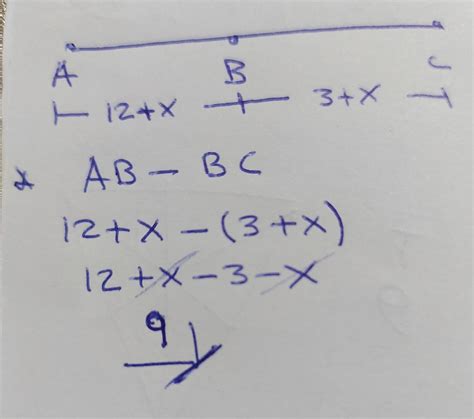 A B C
12+x 3+x
AB - BC
12+x - (3+x)
12+x-3-x
9